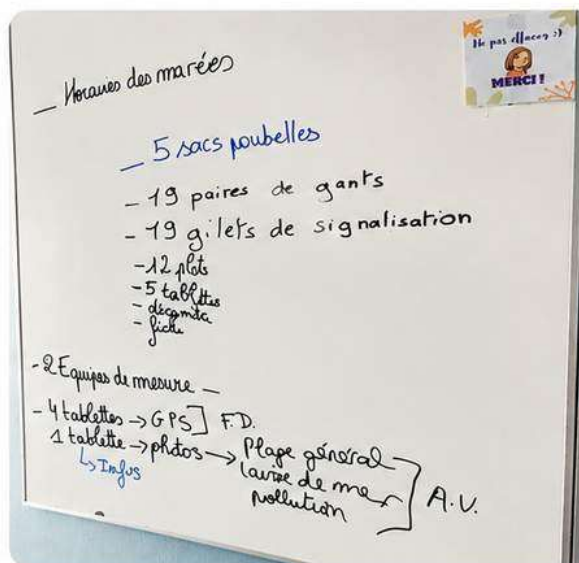 Ne pas effacer :)
MERCI !
_ Horaires des marées
_ 5 sacs poubelles
- 19 paires de gants
- 19 gilets de signalisation
- 12 plots
- 5 tablettes
- décamètre
- fiche
- 2 Equipes de mesure -
- 4 tablettes → GPS ] F.D.
1 tablette → photos → Plage général
↳ Infos
laisse de mer
pollution
] A.V.